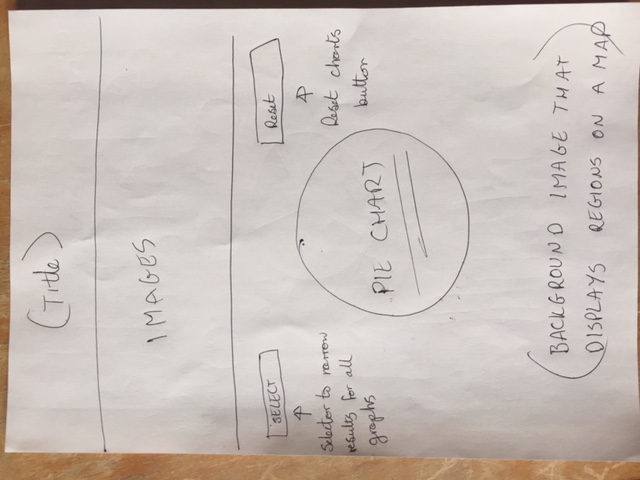 (Title)
IMAGES
SELECT
Reset
Selector to narrow
results for all
graphs
Reset charts
button
PIE CHART
(BACKGROUND IMAGE THAT
DISPLAYS REGIONS ON A MAP)